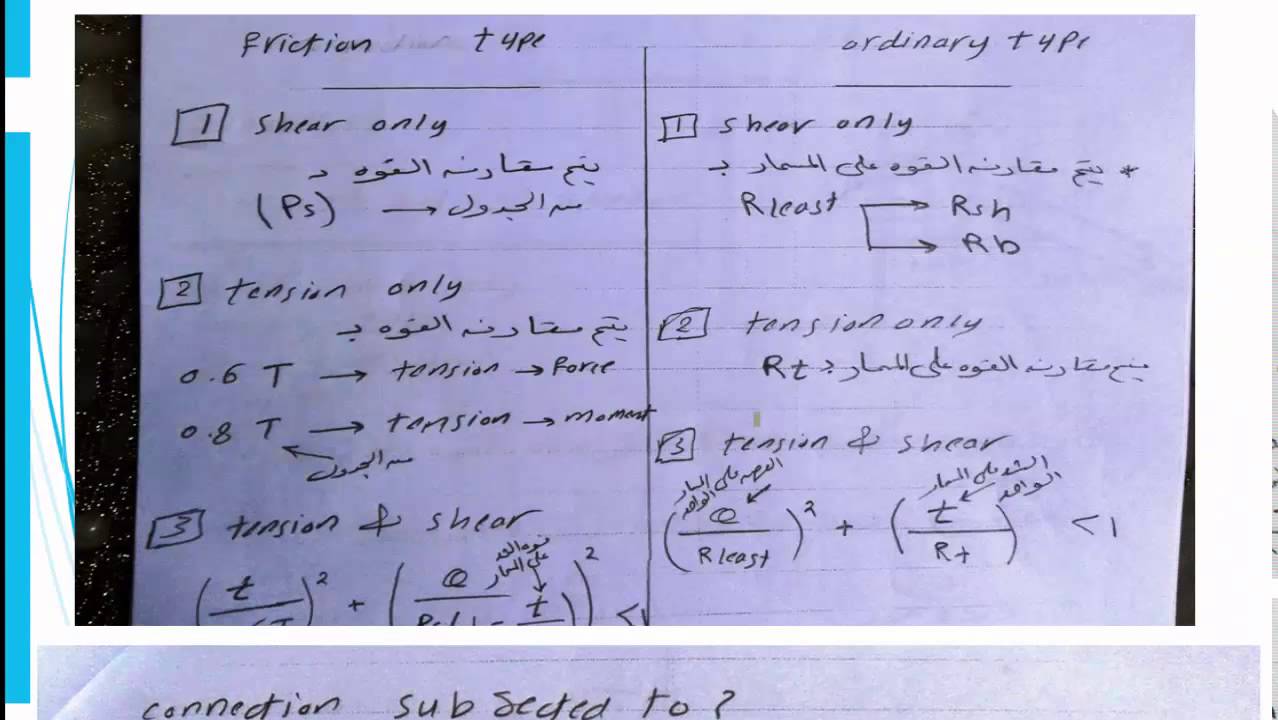 Friction type
1 Shear only
يتم مقارنه القوه بـ
(Ps) ← من الجدول
2 tension only
يتم مقارنه القوه بـ
0.6 T → tension → Force
0.8 T → tension → moment
من الجدول
3 tension & shear
قوه الشد
على المسمار
(t / T)² + (Q / Ps(1 - t / ))² <1
ordinary type
1 Shear only
* يتم مقارنه القوه على المسمار بـ
R least → Rsh
→ Rb
2 tension only
يتم مقارنه القوه على المسمار بـ Rt
3 tension & shear
القص على المسمار الواحد
الشد على المسمار
الواحد
(Q / R least)² + (t / Rt) <1
connection subjected to ?